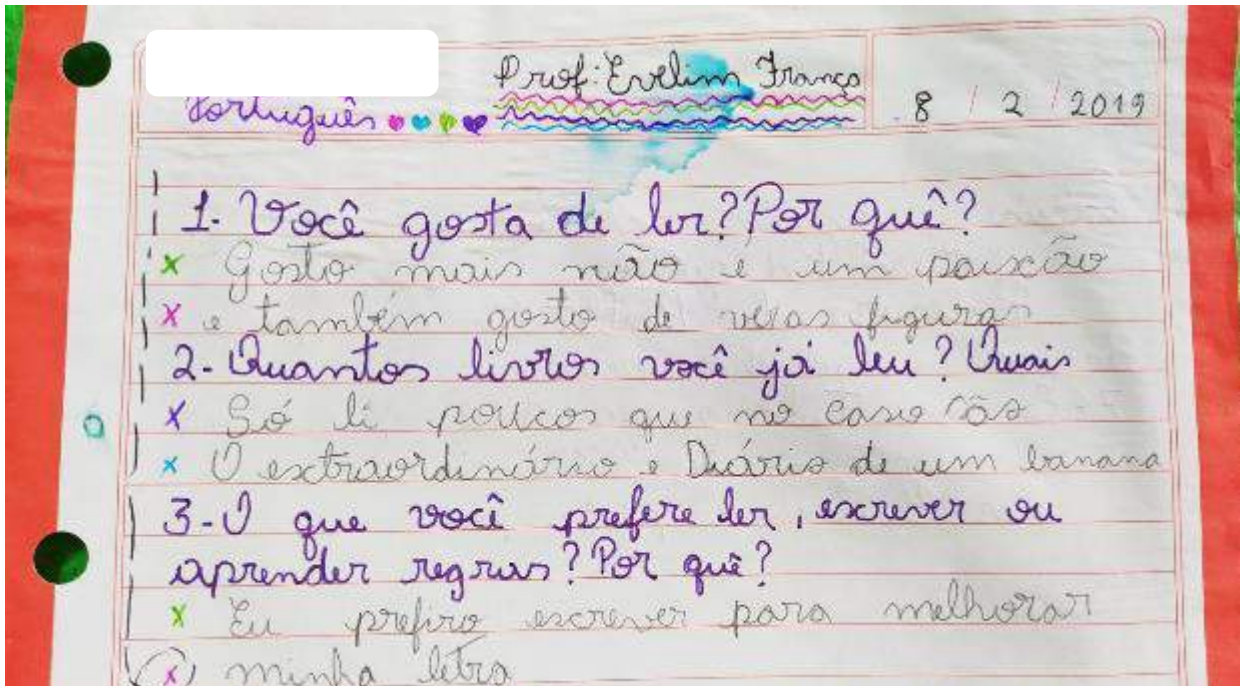 Prof: Evelim França
Português
8 / 2 / 2019
1. Você gosta de ler? Por quê?
Gosto mais não e um paixão
e também gosto de veras figuras
2. Quantos livros você já leu? Quais
Só li poucos que no caso são
O extraordinário e Diário de um banana
3-O que você prefere ler, escrever ou
aprender regras? Por quê?
Eu prefiro escrever para melhorar
minha letra